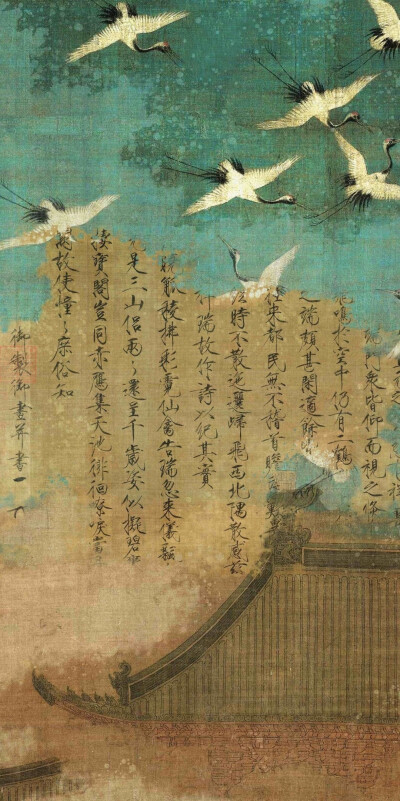 祥
門衆皆仰而視之倏
飛鳴於空中仍有二鶴
之端頗甚閑適餘
往來都民無不稽首瞻
經時不散迤邐歸飛西北隅散感茲
祥瑞故作詩以紀其實
觚稜拂彩霓仙禽告瑞忽來儀飄
元是三山侶兩〻還呈千歲姿似擬碧鸞
棲寶閣豈同赤鴈集天池徘徊嘹唳當
闕故使憧〻庶俗知
御製御畫并書